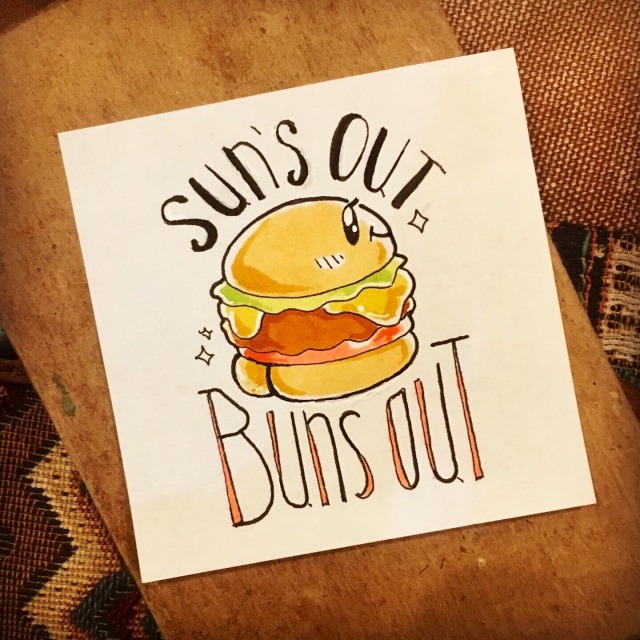 Sun's out
Buns out